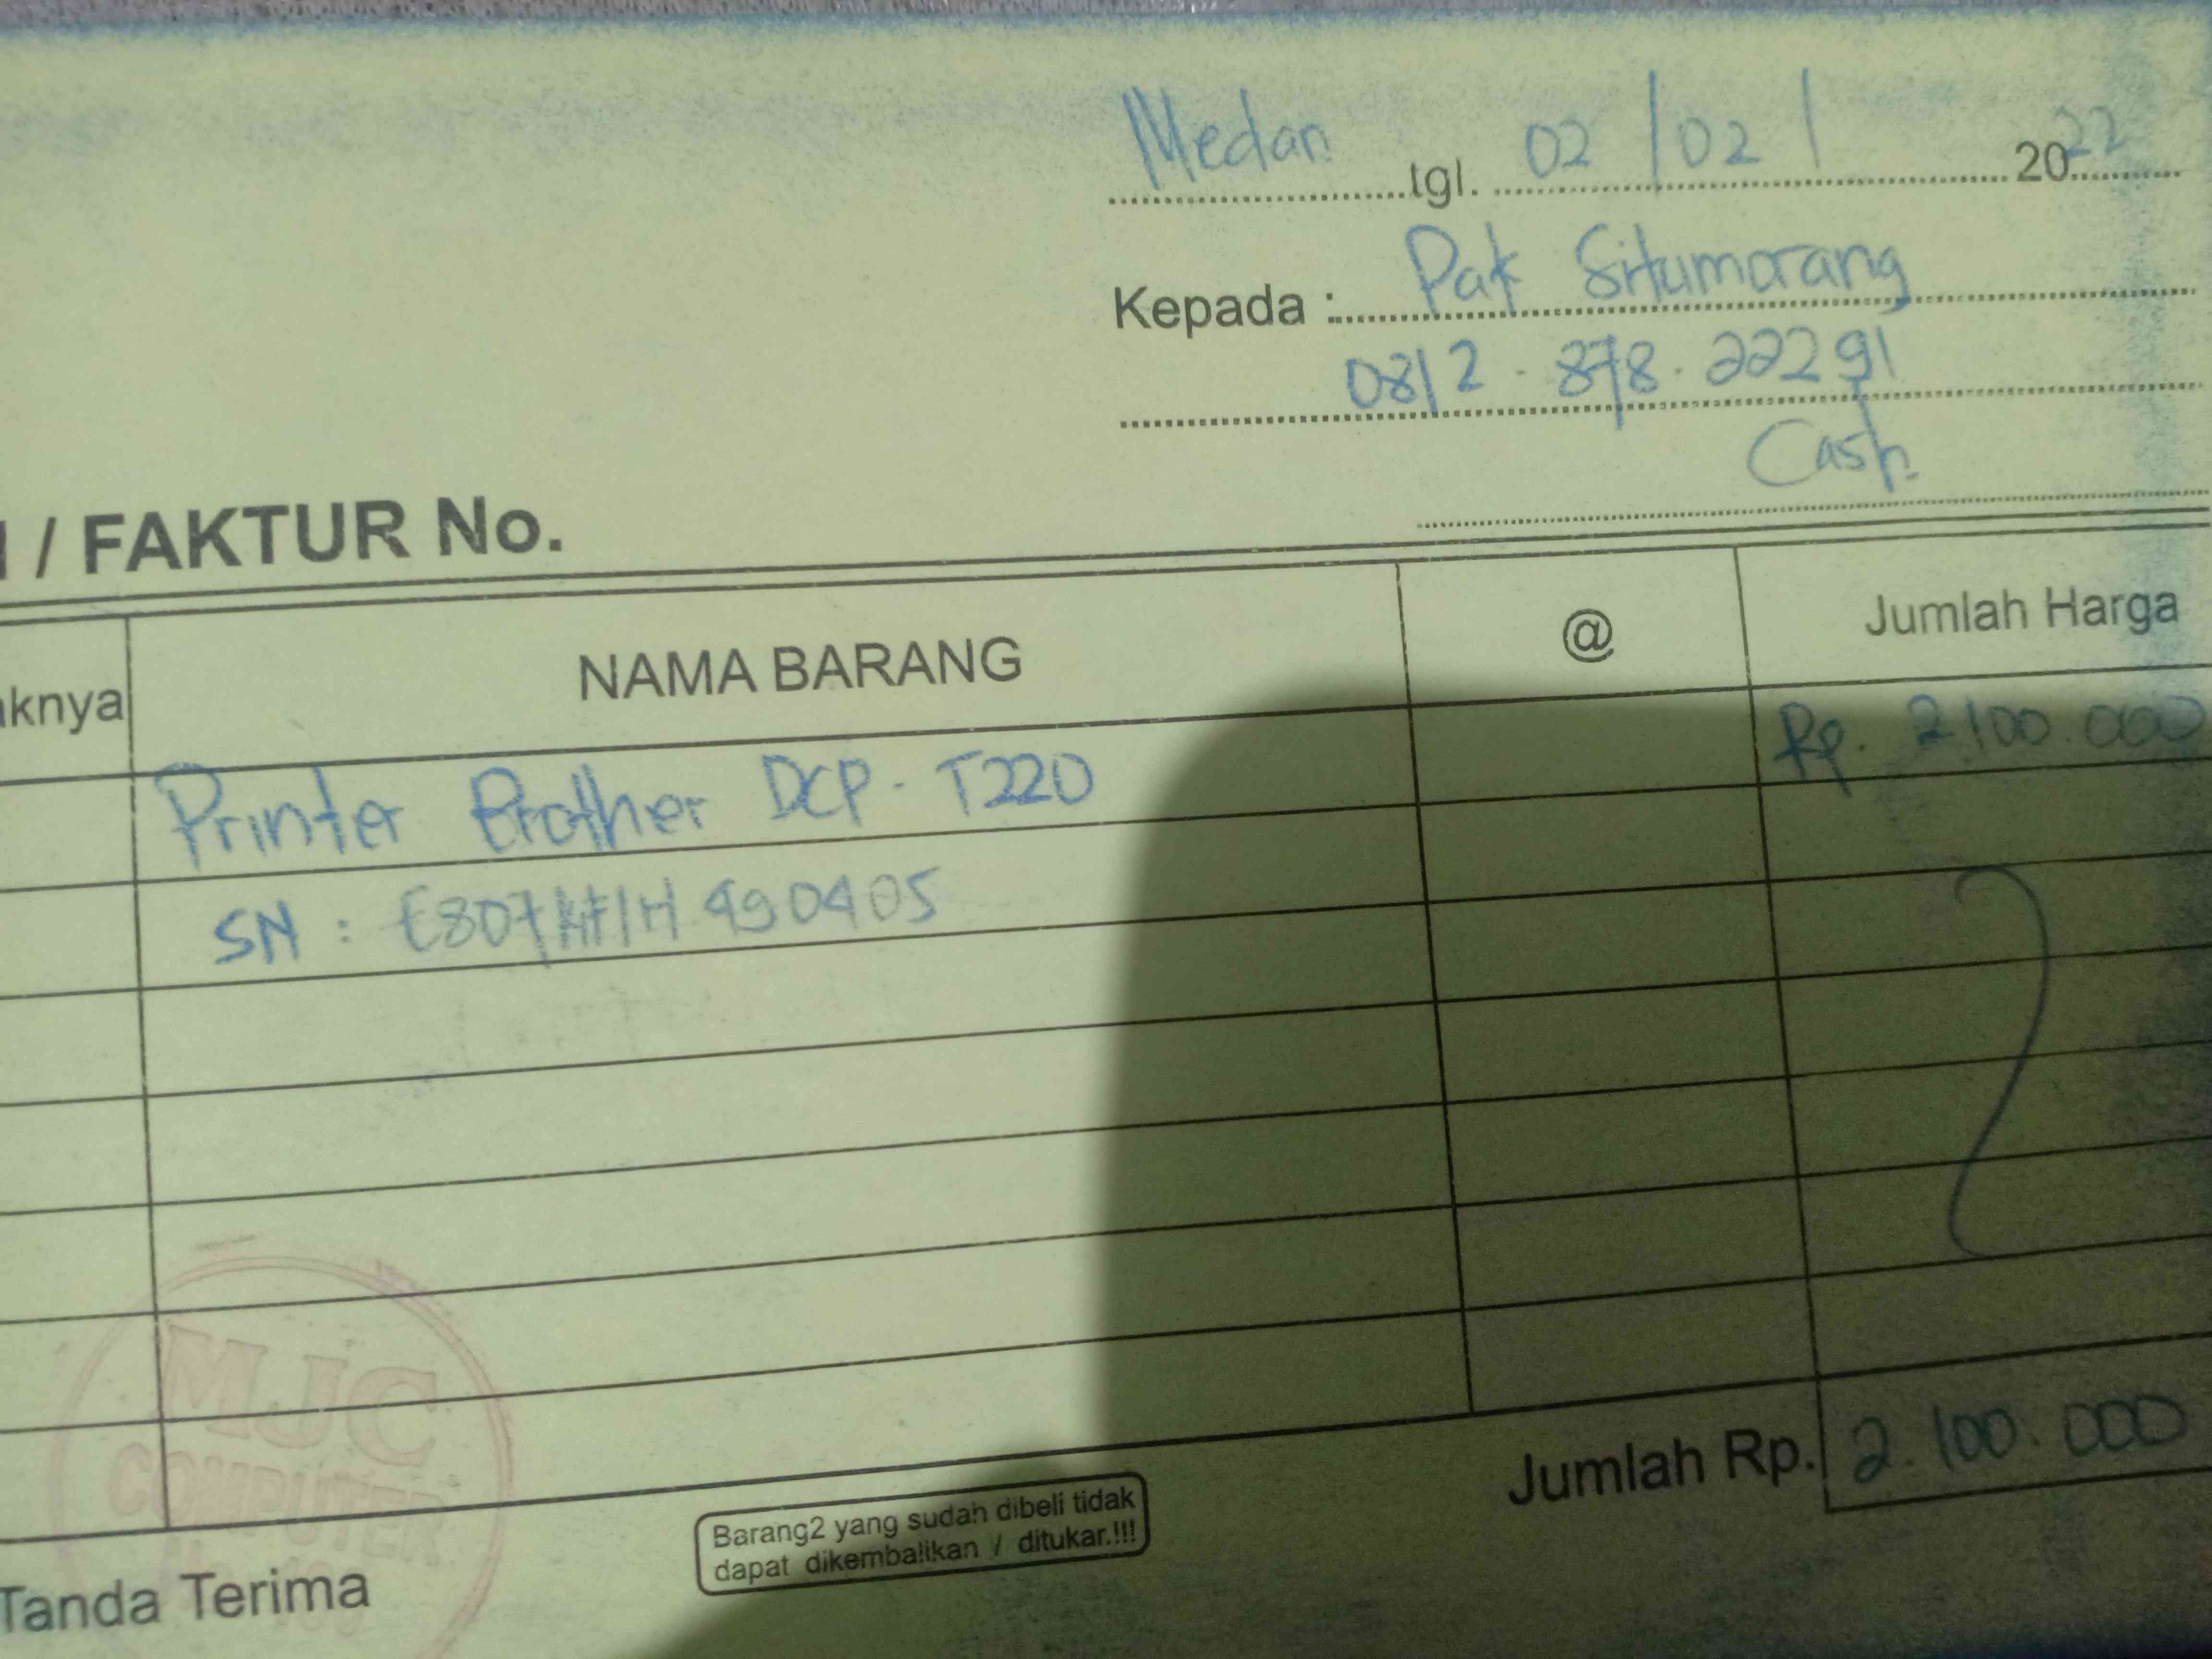 Medan tgl. 02 / 02 / 2022
Kepada : Pak Situmorang
0812 . 878 . 22291
Cash.
/ FAKTUR No.
aknya NAMA BARANG @ Jumlah Harga
Printer Brother DCP - T220 Rp. 2100.000
SN :
MJC
COMPUTER
Jumlah Rp. 2.100.000
Barang2 yang sudah dibeli tidak
dapat dikembalikan / ditukar.!!!
Tanda Terima